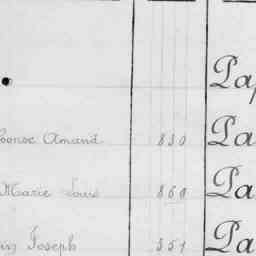 Pap
Amand 830 Pa
Marie Louis 860 Pa
Joseph 551 Pa